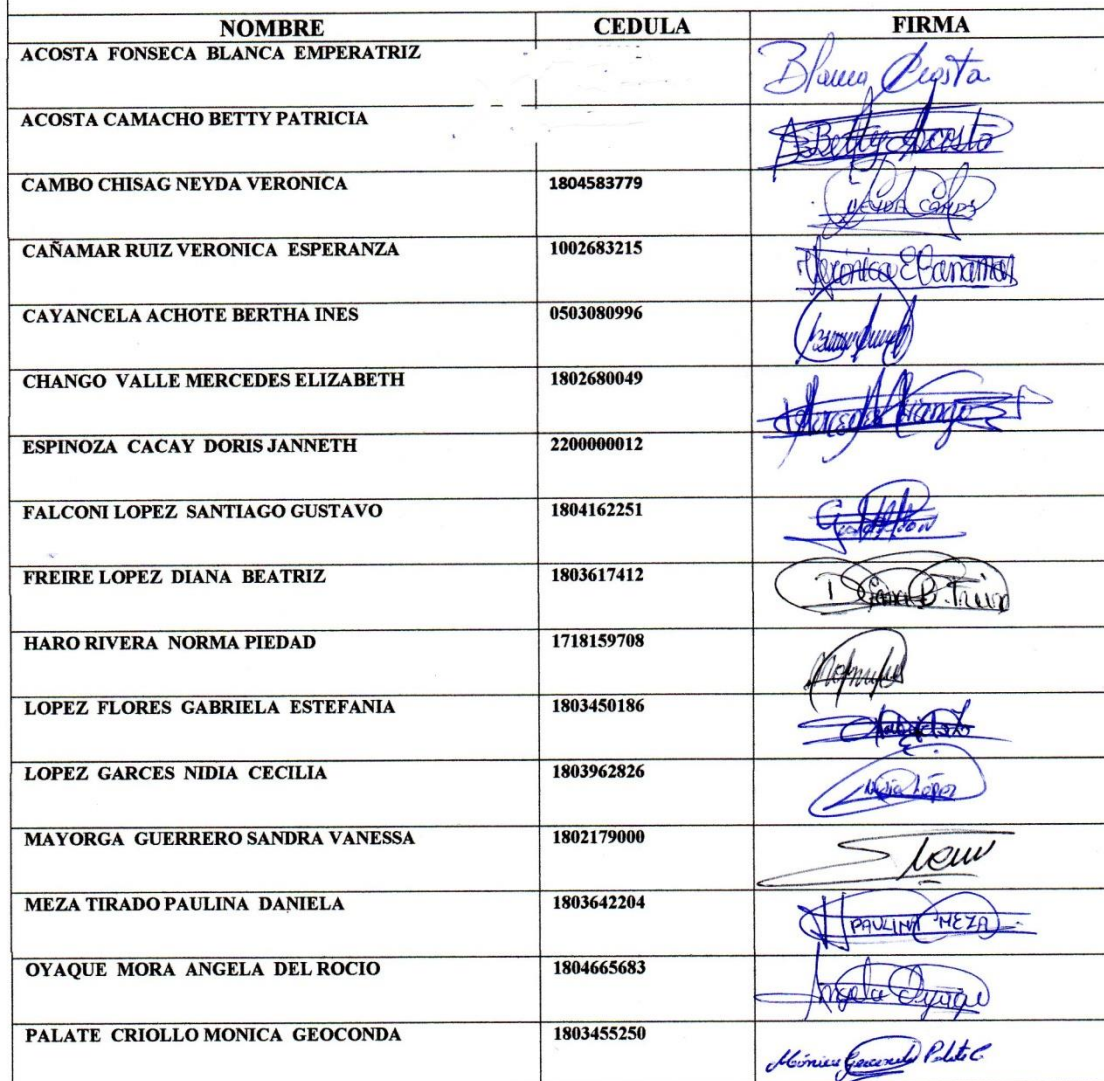 NOMBRE CEDULA FIRMA
ACOSTA FONSECA BLANCA EMPERATRIZ Blanca Acosta
ACOSTA CAMACHO BETTY PATRICIA Betty Acosta
CAMBO CHISAG NEYDA VERONICA 1804583779 NEYDA
CAÑAMAR RUIZ VERONICA ESPERANZA 1002683215 Verónica E Canamar
CAYANCELA ACHOTE BERTHA INES 0503080996
CHANGO VALLE MERCEDES ELIZABETH 1802680049 Mercedes Chango
ESPINOZA CACAY DORIS JANNETH 2200000012
FALCONI LOPEZ SANTIAGO GUSTAVO 1804162251
FREIRE LOPEZ DIANA BEATRIZ 1803617412 Diana B.
HARO RIVERA NORMA PIEDAD 1718159708
LOPEZ FLORES GABRIELA ESTEFANIA 1803450186
LOPEZ GARCES NIDIA CECILIA 1803962826 Nidia López
MAYORGA GUERRERO SANDRA VANESSA 1802179000
MEZA TIRADO PAULINA DANIELA 1803642204 PAULINA MEZA
OYAQUE MORA ANGELA DEL ROCIO 1804665683 Angela Oyaque
PALATE CRIOLLO MONICA GEOCONDA 1803455250 Mónica Geoconda Palate C